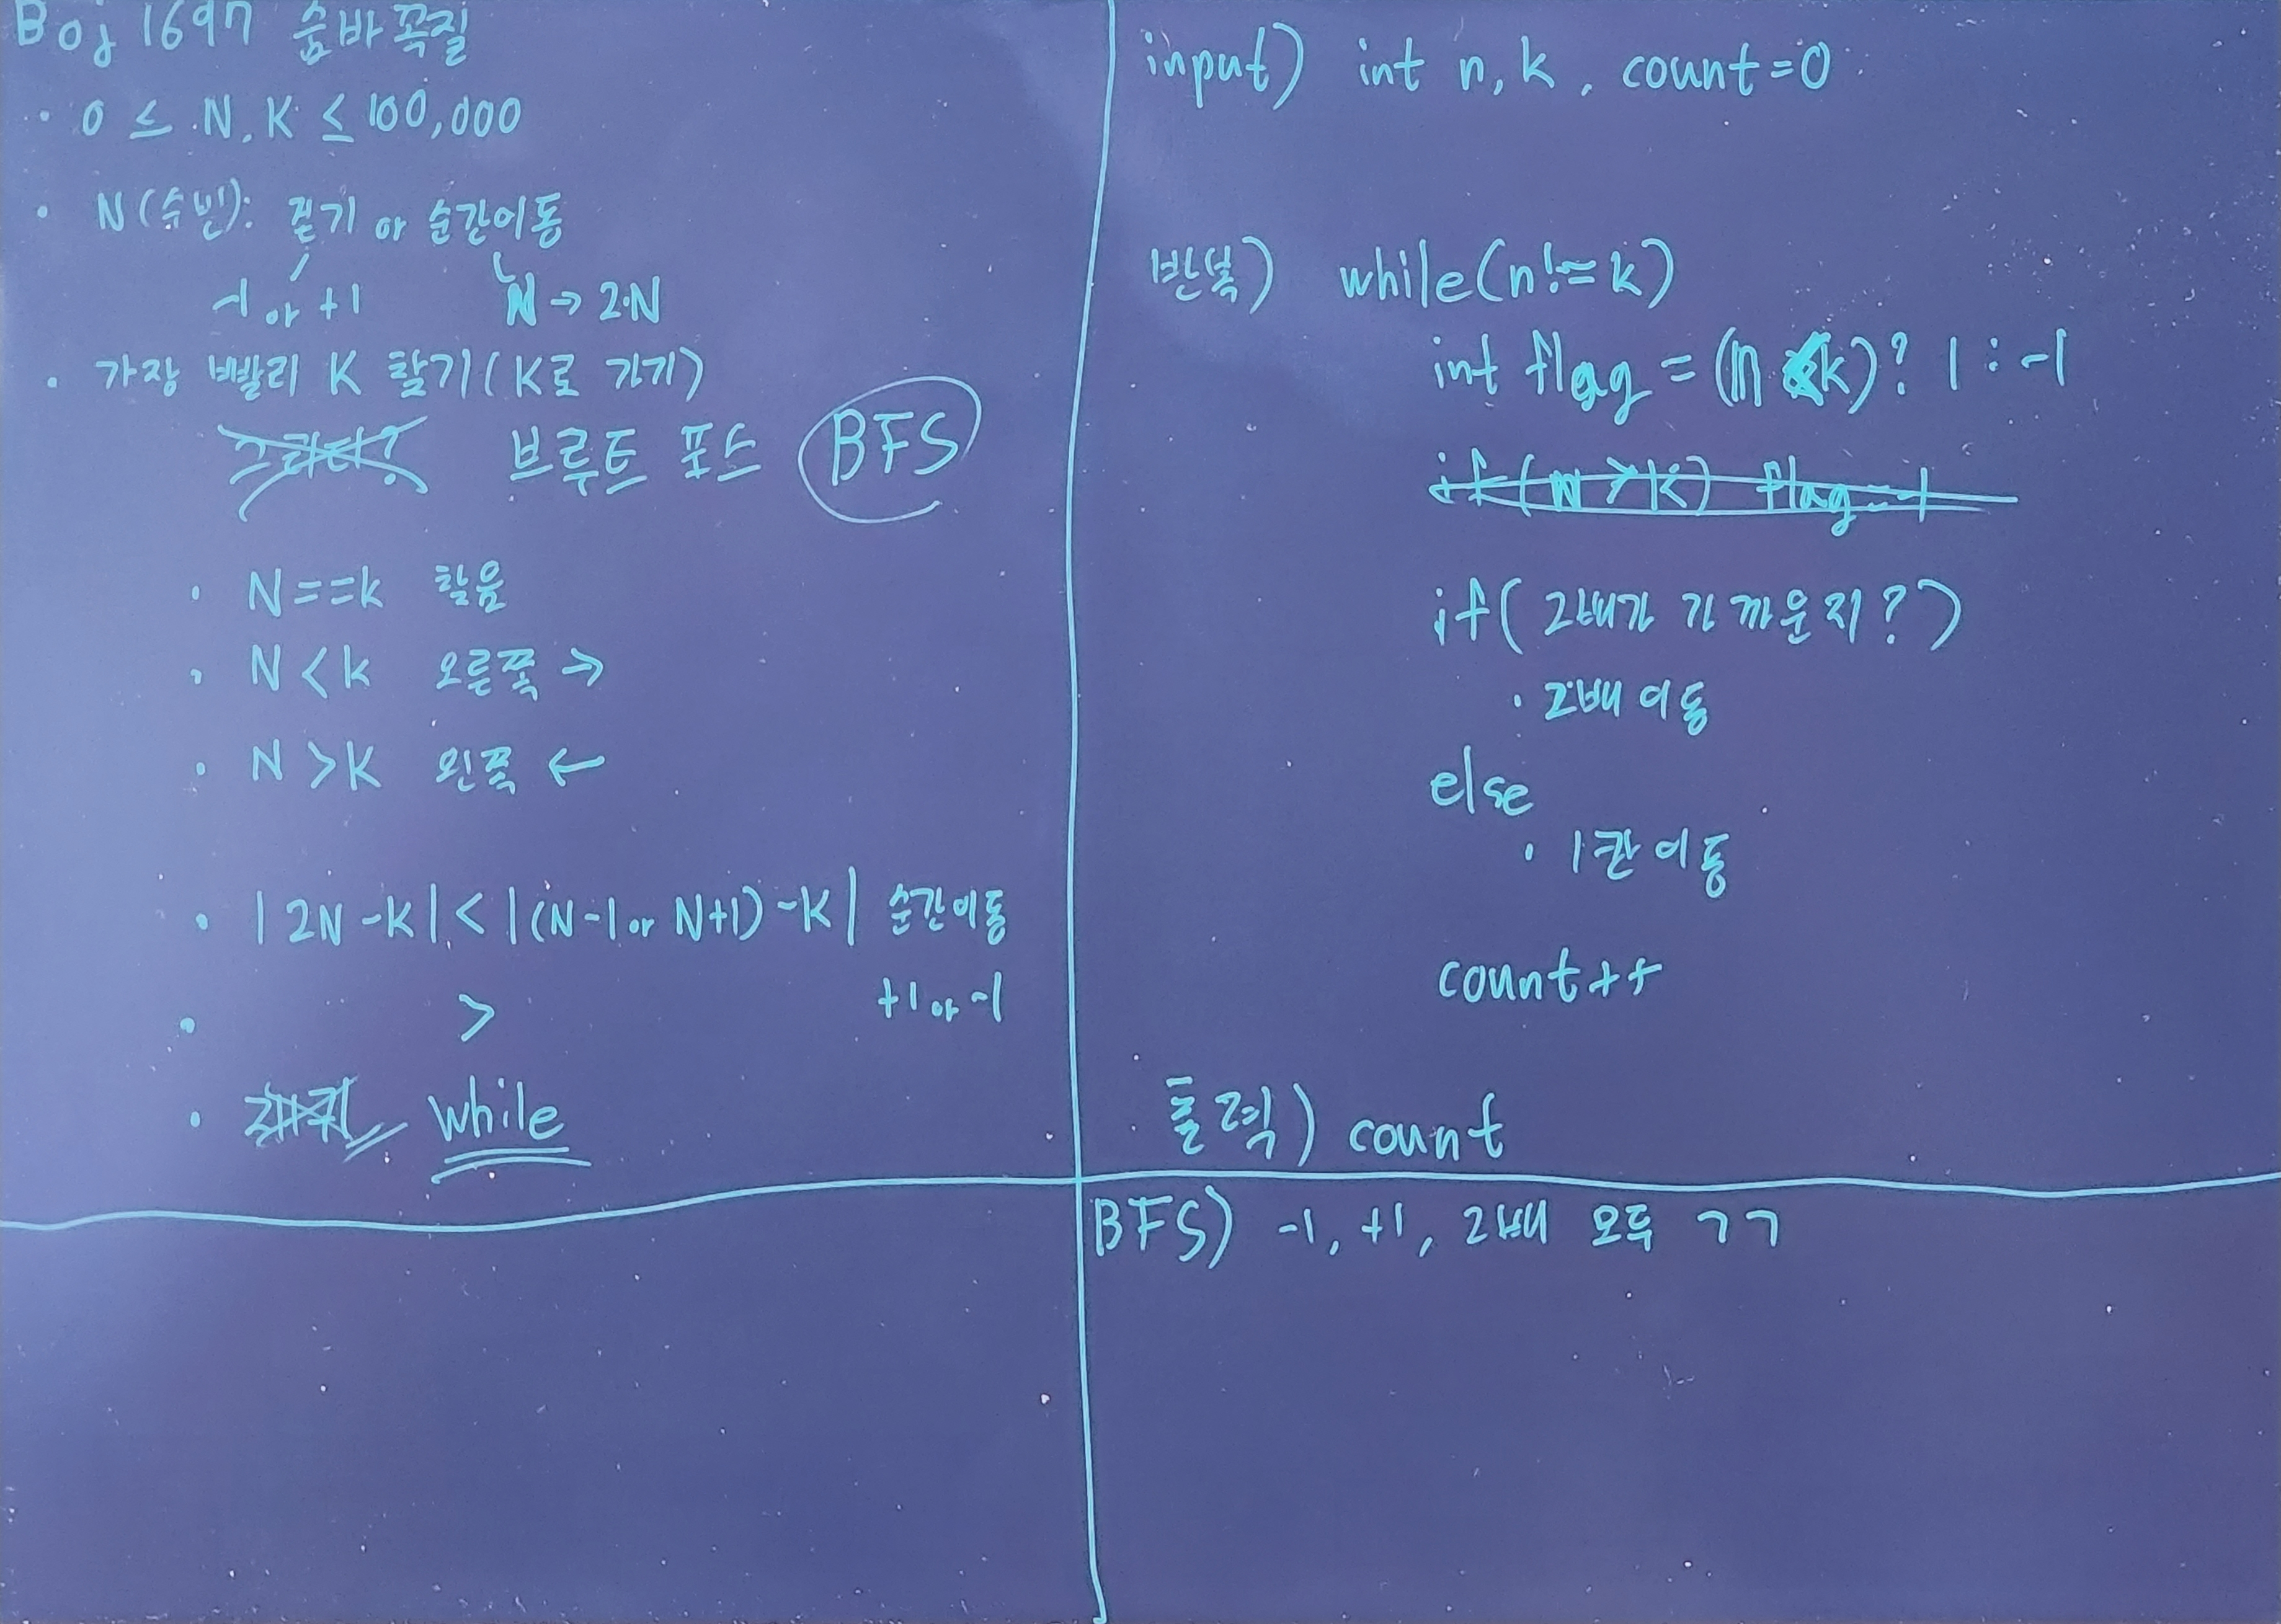 Boj 1697 숨바꼭질
· 0 ≤ N, K ≤ 100,000
· N(수빈): 걷기 or 순간이동
-1 or +1 N → 2·N
· 가장 빨리 K 찾기(K로 가기)
그리디? 브루트 포스 BFS
· N==k 찾음
· N<k 오른쪽 →
· N>K 왼쪽 ←
· |2N-K| < |(N-1 or N+1)-K| 순간이동
· > +1 or -1
· 재귀 while
input) int n, k, count=0
반복) while(n!=k)
int flag = (n<k)? 1 : -1
if(n>k) flag=-1
if(2배가 가까운지?)
· 2배 이동
else
· 1칸 이동
count++
출력) count
BFS) -1, +1, 2배 모두 ㄱㄱ